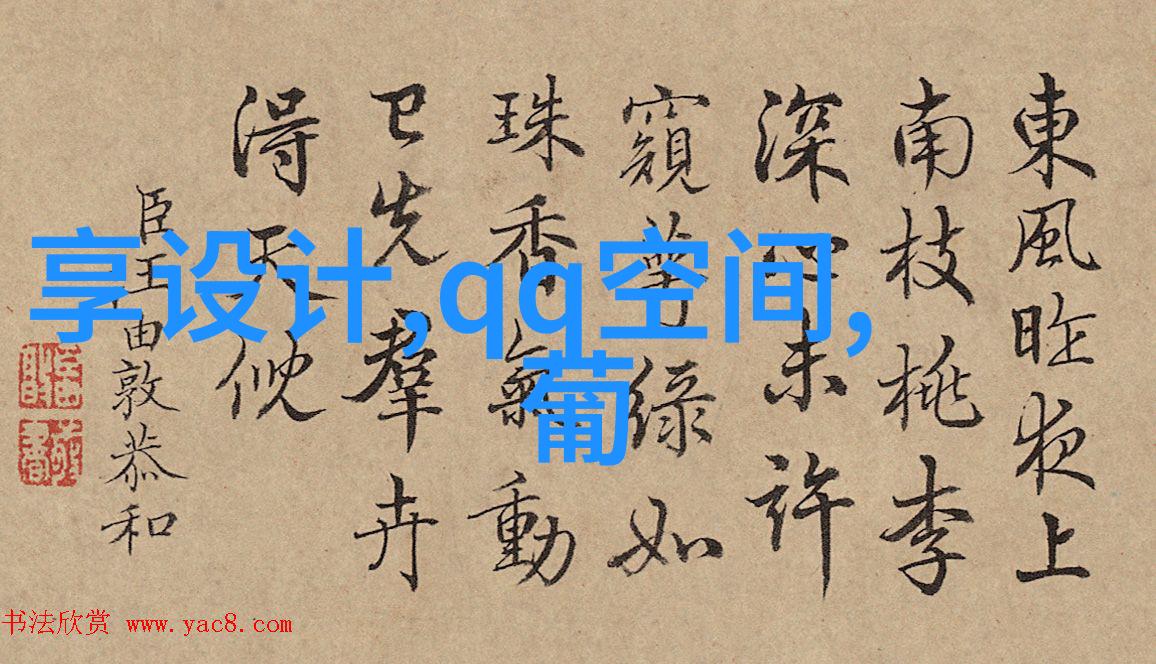 東風昨夜上
南枝桃李
深心未許
窺萼綠如
珠香氣動
已先羣卉
得天倪
臣汪由敦恭和
享设计,qq空间,
葡
书法欣赏 www.yac8.com